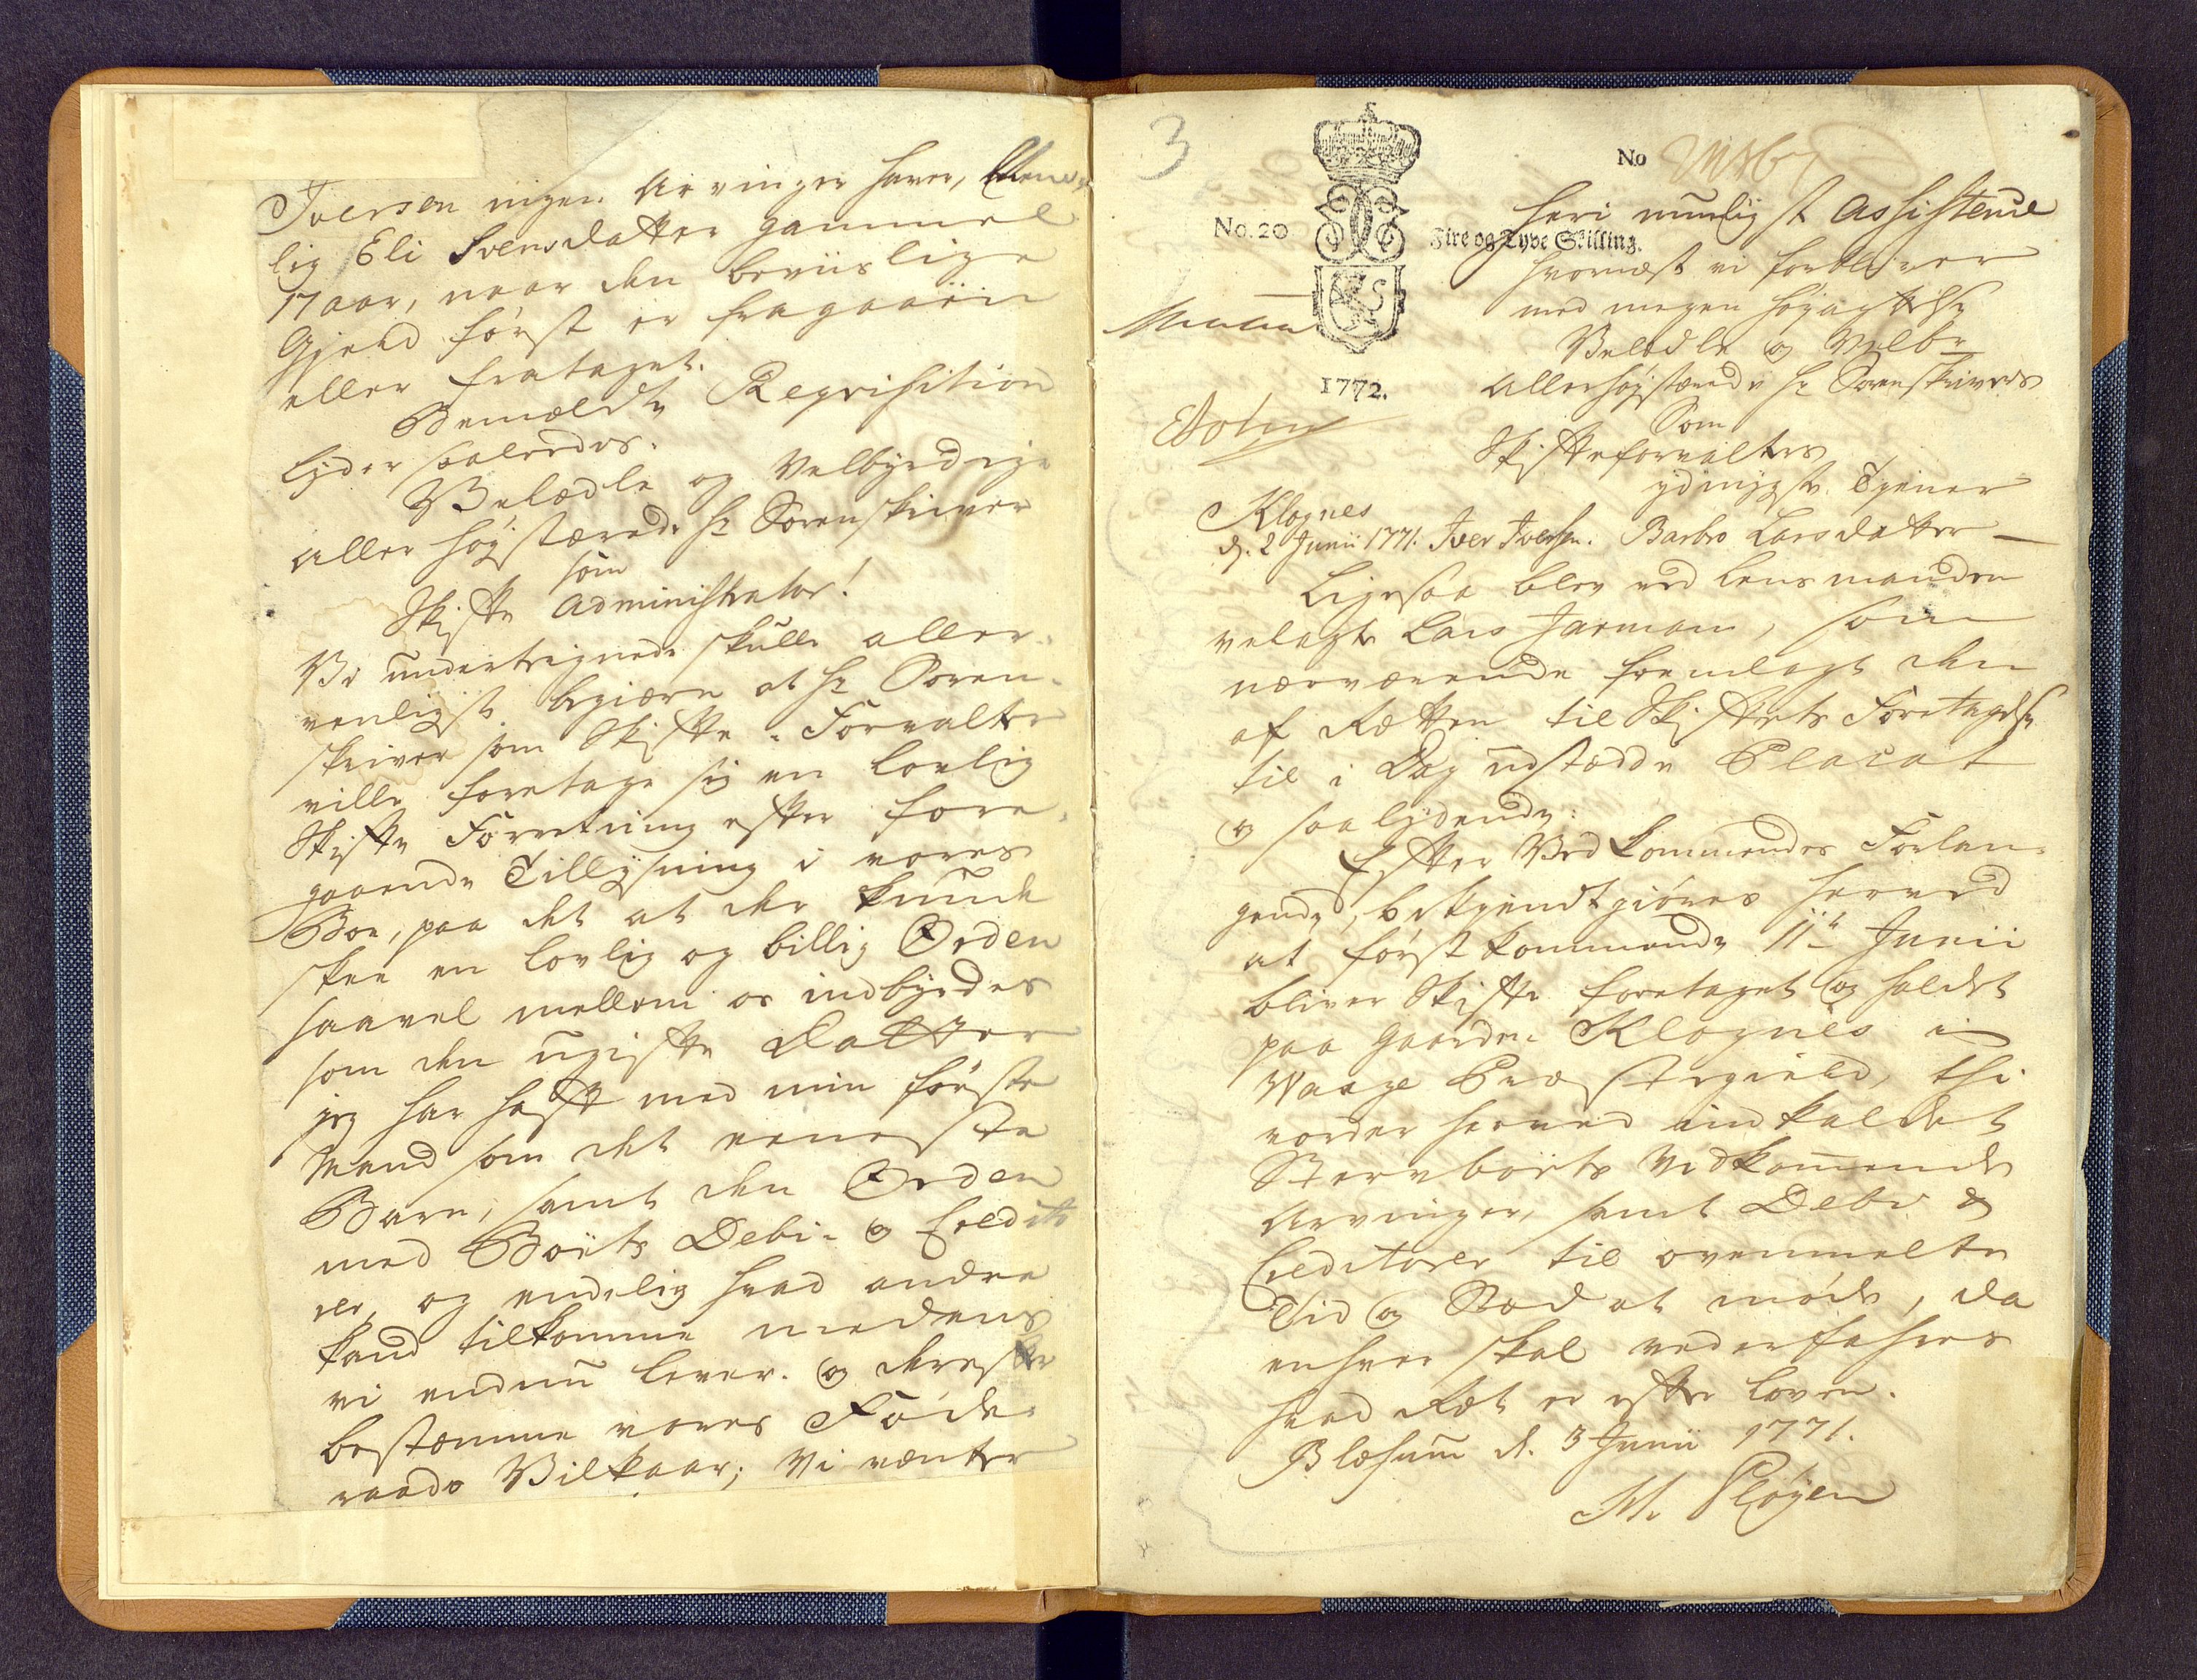 Iversen ingen Arvinger haver, Nem¬
lig Eli Svensdatter gammel
17 aar, naar den beviislige
Gjeld først er fragaaen
eller frataget.
Bemældte Reqvisition
lyder saaledes.
Velædle og Velbyrdige
Aller høystærede Hr Sorenskriver
som
Skifte Administrator!
Vi undertegnede skulle aller¬
venligst begiære at Hr Soren¬
skriver som Skifte-Forvalter
ville foretage sig en lovlig
Skifte Forretning efter fore¬
gaaende Tillysning i vores
Boe, paa det at der kunde
skee en lovlig og billig Orden
saavel mellem os indbyrdes
som den ugifte Datter
jeg har haft med min første
Mand som det eeneste
Barn, samt den Orden
med Boets Debi- og Credito
rer, og endelig hvad andre
kand tilkomme medens
vi endnu lever. og derefter
bestemme vores Føde¬
raads Vilkaar; Vi venter
3
No
No. 20
Fire og Tyve Skilling.
1772.
heri muligst Assistence
hvornæst vi forbliver
med megen høyagtelse
Velædle og Velbr
Allerhøystærede Hr Sorenskrivers
Som
Skifteforvalters
ydmygste Tjener
Klognes
d. 2 Junii 1771. Iver Iversen. Barbro Larsdatter —
Ligesaa blev ved Lensmanden
velagte Lars Jarmann, som
nærværende fremlagt den
af Retten til Skiftets Foretagelse
til i Dag udstædde Placat
og saalydende:
Efter Vedkommendes Forlan¬
gende, bekjendtgiøres herved
at førstkommende 11te Junii
bliver Skifte foretaget og holdet
paa Gaarden Klognes i
Waage Præstegield, thi
vorder herved indkaldet
Sterboets Vedkommende
Arvinger, samt Debi &
Creditorer til ovenmelte
Tid og Stæd at møde, da
enhver skal vederfahres
hvad Ret er efter Loven.
Blæsum d. 3 Junii 1771.
M. Pløyen